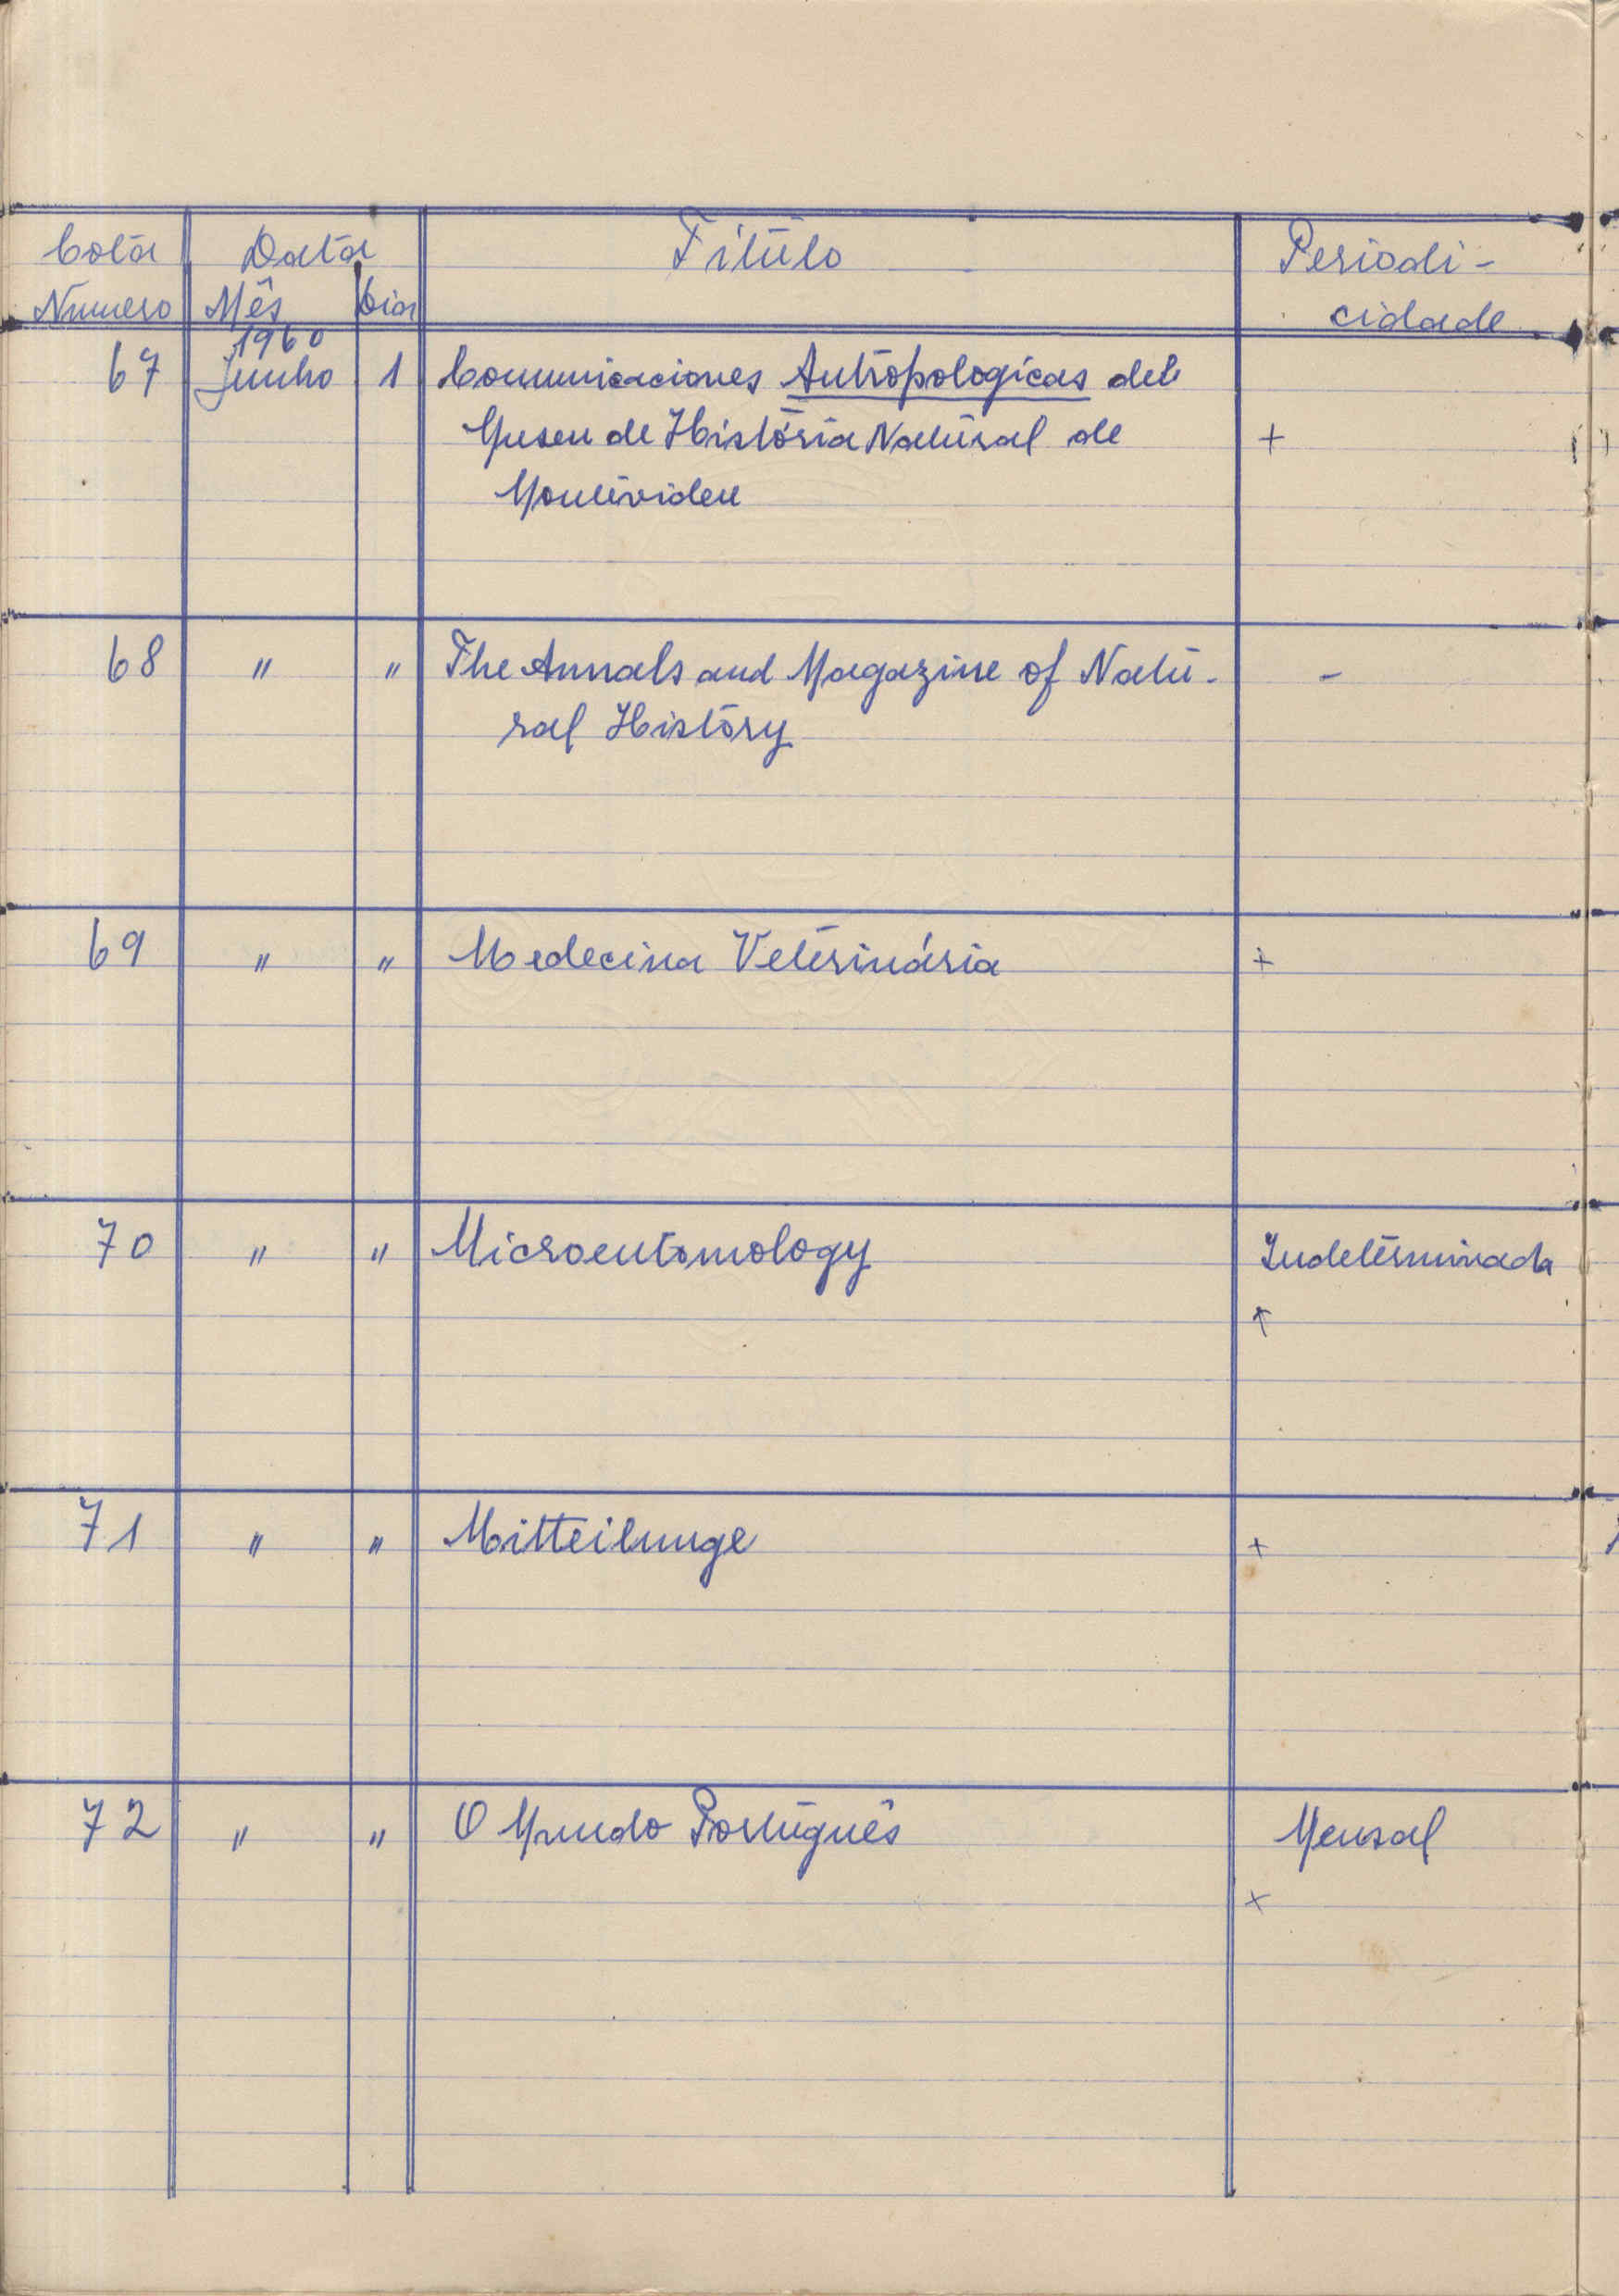 Cota Data Título Periodi-
Numero Mês Dia cidade
1960
67 Junho 1 Comunicaciones Antropologicas del
Museu de História Natural de +
Montevideu
68 " " The Annals and Magazine of Natu- -
ral History
69 " " Medecina Veterinária +
70 " " Microentomology Indeterminada
+
71 " " Mitteilunge +
72 " " O Mundo Português Mensal
+